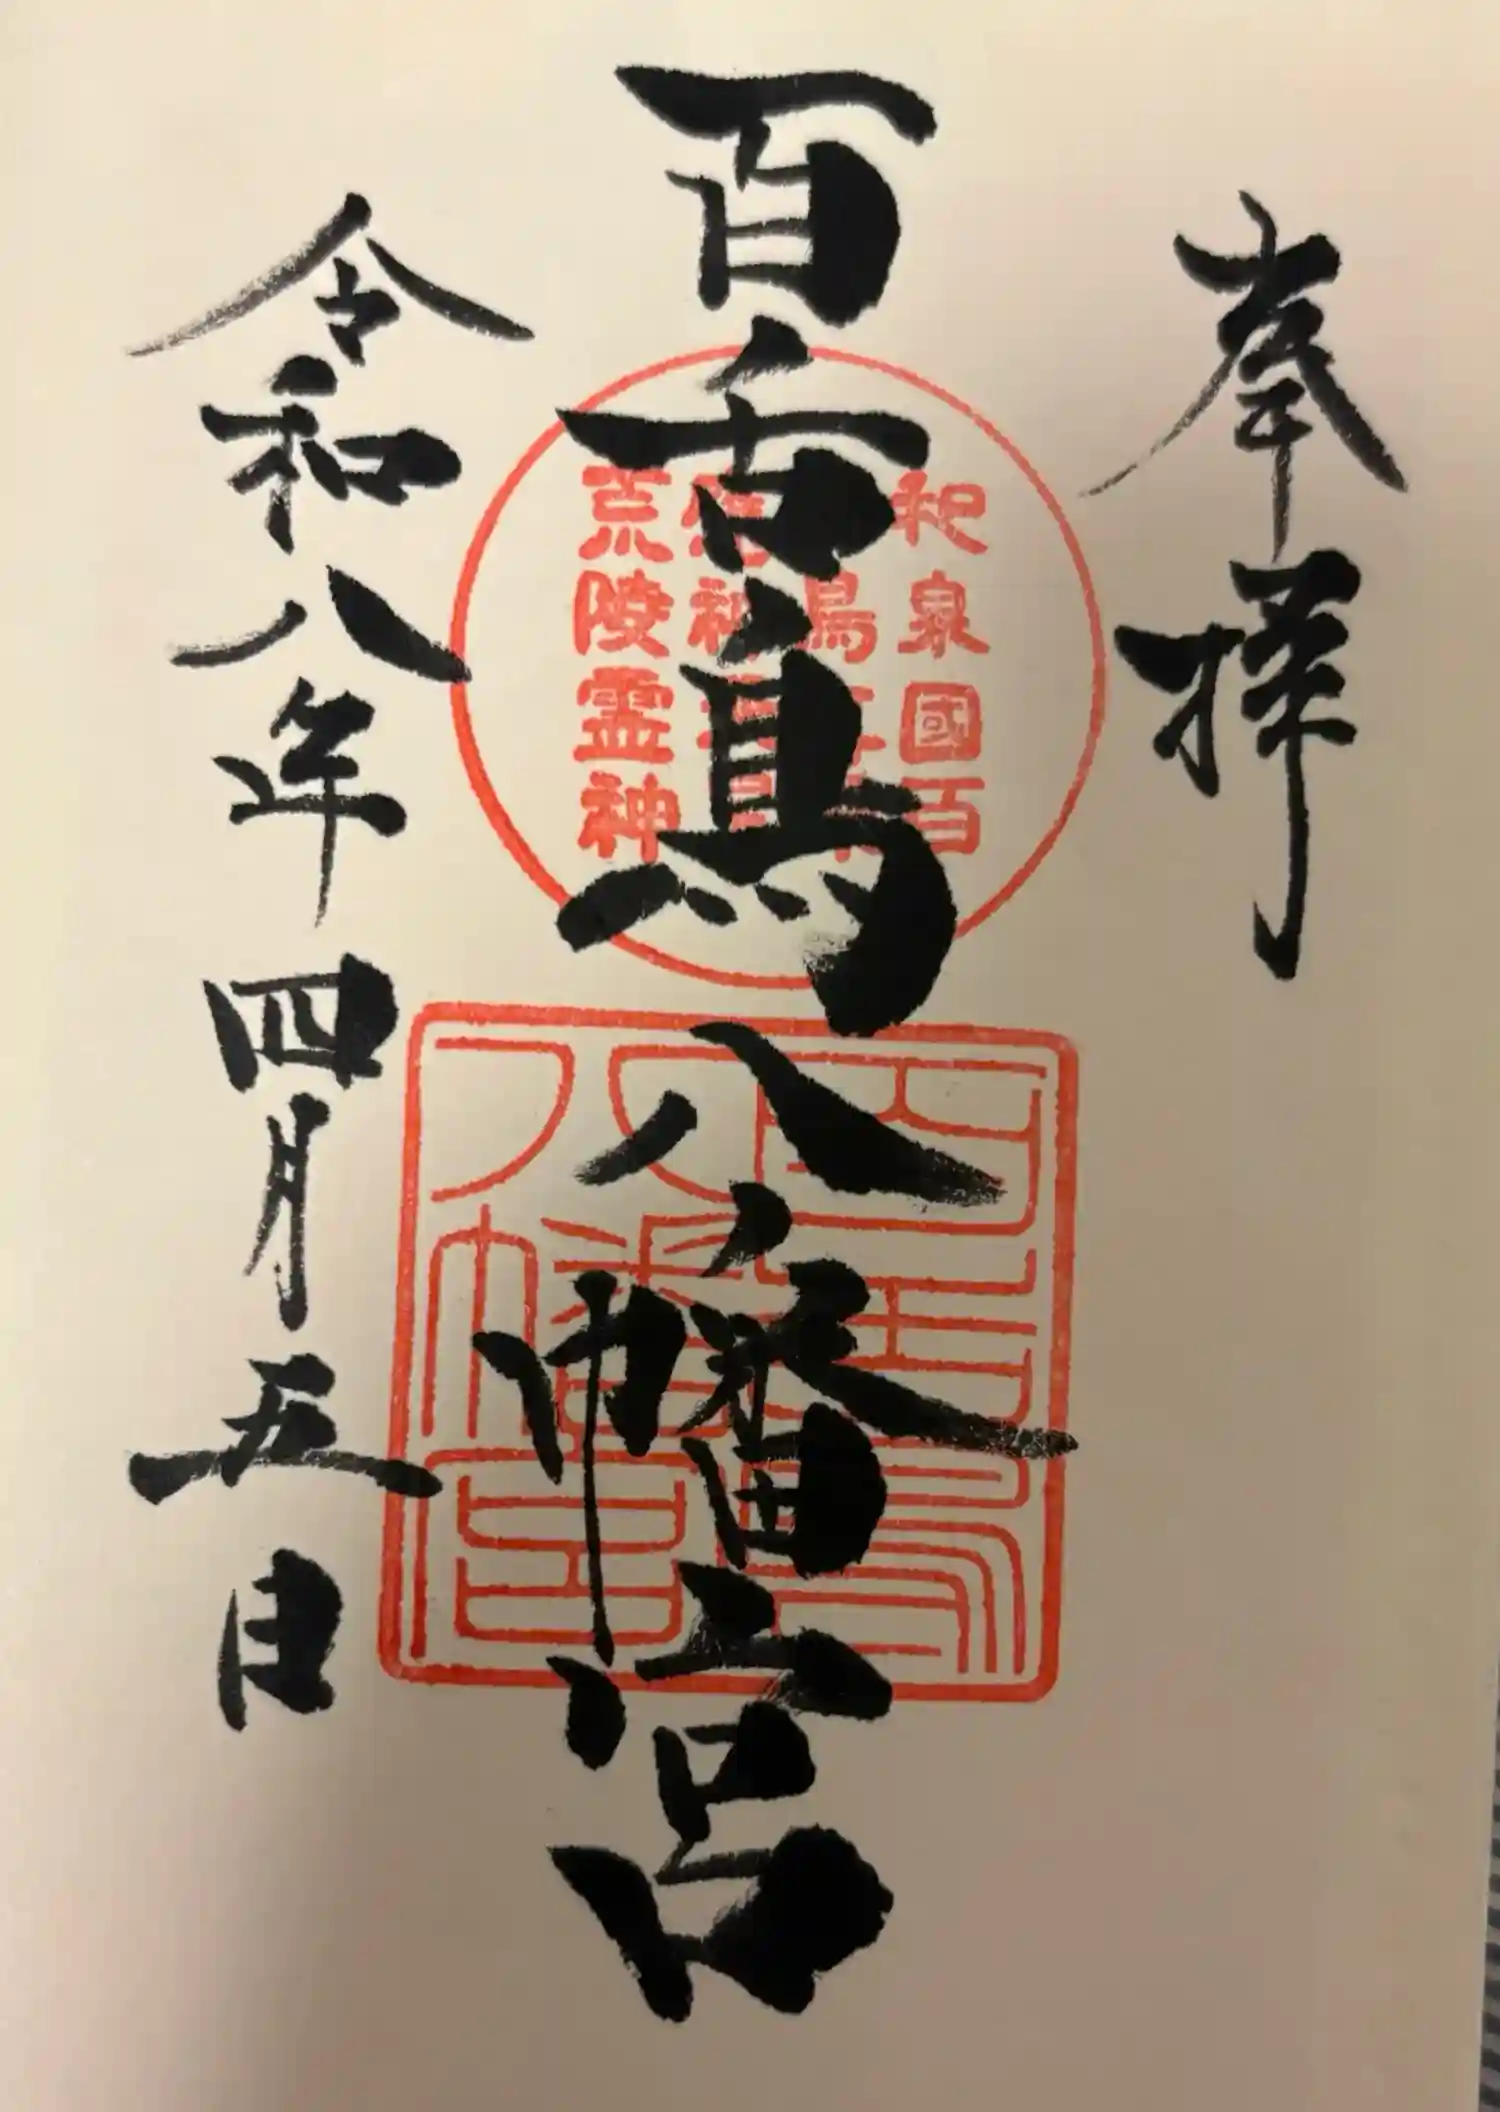 奉拝
百舌鳥八幡宮
令和八年四月五日
和泉國百
荒陵霊神
百舌鳥
八幡宮